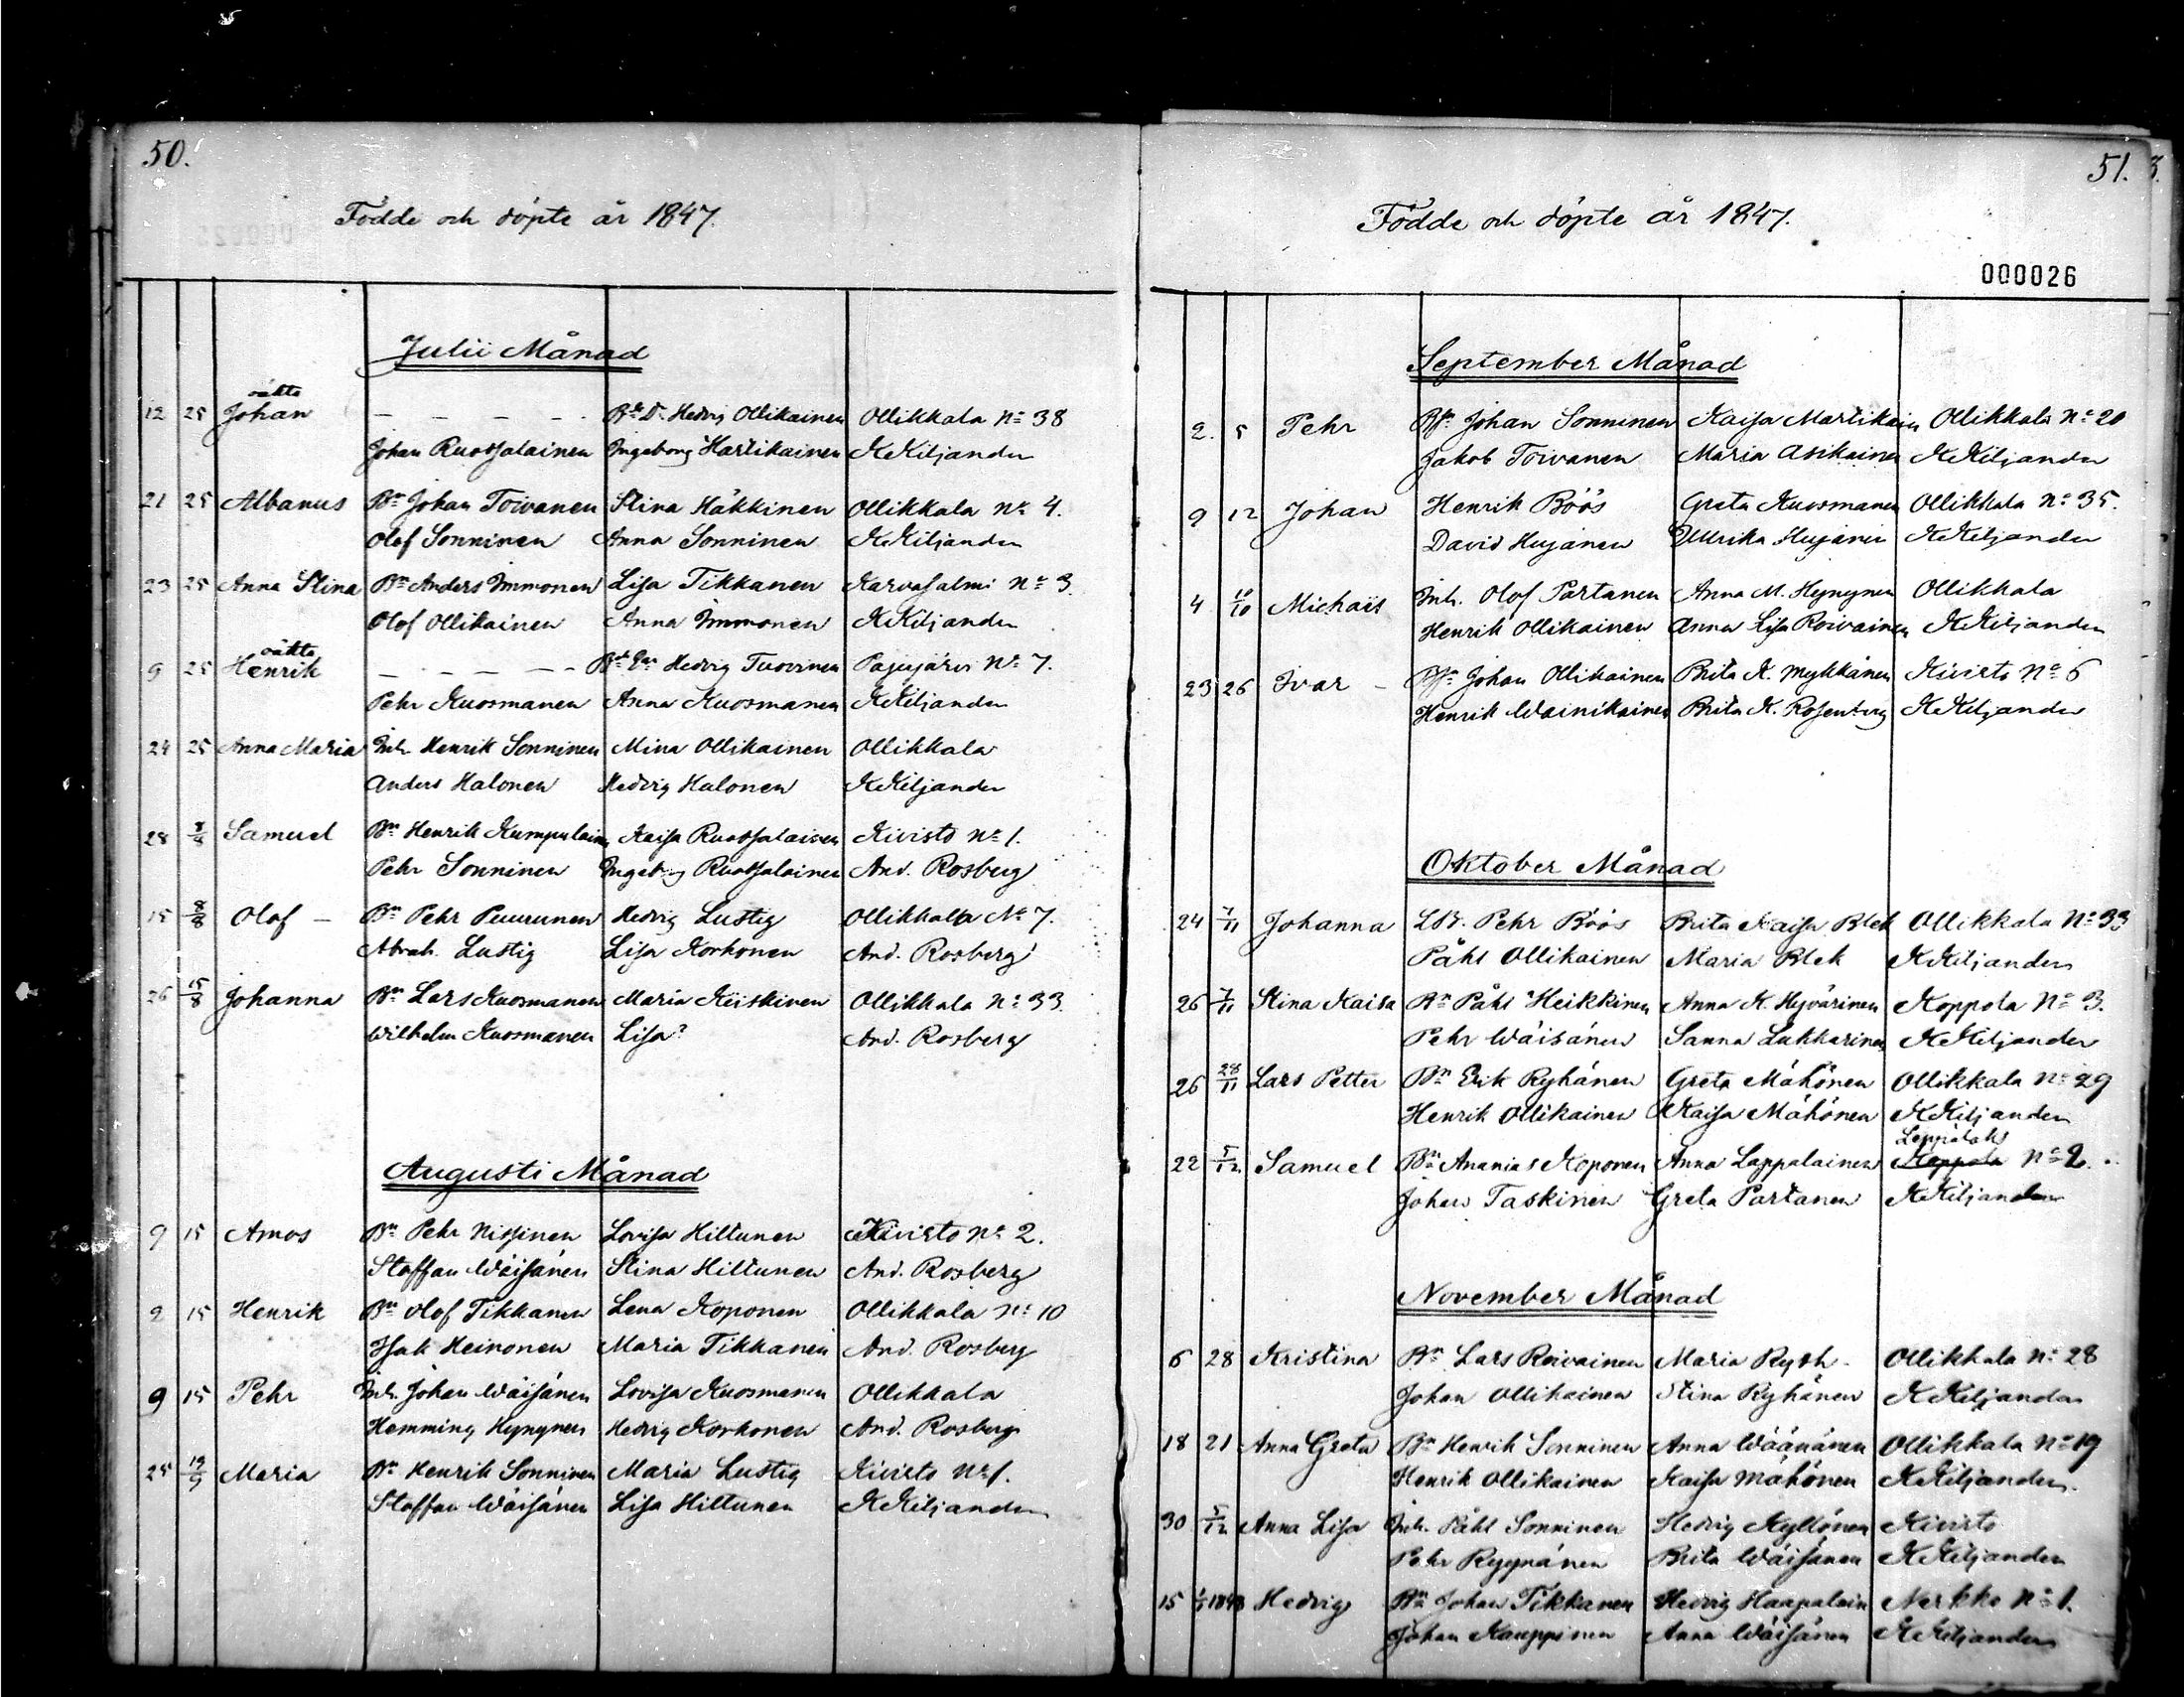 50.
Födde och döpte år 1847.
Julii Månad
oäkta
12 25 Johan — — — — Bd. Dr. Hedvig Ollikainen Ollikkala No 38
Johan Ruotsalainen Ingeborg Hartikainen K Kiljander
21 25 Albanus Bn Johan Toivanen Stina Häkkinen Ollikkala No 4.
Olof Sonninen Anna Sonninen K Kiljander
23 25 Anna Stina Bn Anders Immonen Lisa Tikkanen Karvasalmi No 3.
Olof Ollikainen Anna Immonen K Kiljander
oäkta
9 25 Henrik — — — — Hedvig Tuovinen Pajujärvi No 7.
Pehr Kuosmanen Anna Kuosmanen K Kiljander
24 25 Anna Maria Inh. Henrik Sonninen Mina Ollikainen Ollikkala
Anders Halonen Hedvig Halonen K Kiljander
28 8/8 Samuel Bn Henrik Kumpulain Kaisa Ruotsalainen Kivisto No 1.
Pehr Sonninen Ingeborg Ruotsalainen And. Rosberg
15 8/8 Olof — Bn Pehr Puurunen Hedvig Lustig Ollikkala No 7.
Abrah. Lustig Lisa Korhonen And. Rosberg
26 15/8 Johanna Bn Lars Kuosmanen Maria Kiiskinen Ollikkala No 33.
Wilhelm Kuosmanen Lisa? And. Rosberg
Augusti Månad
9 15 Amos Bn Pehr Nissinen Lovisa Hiltunen Kivisto No 2.
Staffan Wäisänen Stina Hiltunen And. Rosberg
2 15 Henrik Bn Olof Tikkanen Lena Koponen Ollikkala No 10
Isak Heinonen Maria Tikkanen And. Rosberg
9 15 Pehr Inh. Johan Wäisänen Lovisa Kuosmanen Ollikkala
Hemming Hynynen Hedvig Korhonen And. Rosberg
25 12/9 Maria Bn Henrik Sonninen Maria Lustig Kivisto No 1.
Staffan Wäisänen Lisa Hiltunen K Kiljander
51. 3.
Födde och döpte år 1847.
000026
September Månad
2. 5 Pehr Bsn Johan Sonninen Kaisa Martikain Ollikkala No 20
Jakob Toivanen Maria Asikainen K Kiljander
9 12 Johan Henrik Böös Greta Kuosmanen Ollikkala No 35.
David Hujanen Ullrika Hujanen K Kiljander
4 10/10 Michaël Inh. Olof Partanen Anna M. Hynynen Ollikkala
Henrik Ollikainen Anna Lisa Roivainen K Kiljander
23 26 Ivar — Bsn Johan Ollikainen Brita K. Mykkänen Kivisto No 6
Henrik Wainikainen Brita K. Rosenberg K Kiljander
Oktober Månad
24 7/11 Johanna Ldr. Pehr Böös Brita Kaisa Blek Ollikkala No 33
Påhl Ollikainen Maria Blek K Kiljander
26 7/11 Stina Kaisa Bn Påhl Heikkinen Anna K. Hyvärinen Koppola No 3.
Pehr Wäisänen Sanna Lukkarinen K Kiljander
26 28/11 Lars Petter Bn Erik Ryhänen Greta Mähönen Ollikkala No 29
Henrik Ollikainen Kaisa Mähönen K Kiljander
Leppälaks
22 5/12 Samuel Bn Ananias Koponen Anna Lappalainen Koppola No 2.
Johan Taskinen Greta Partanen K Kiljander
November Månad
6 28 Kristina Bn Lars Roivainen Maria Rysh. Ollikkala No 28
Johan Ollikainen Stina Ryhänen K Kiljander
18 21 Anna Greta Bn Henrik Sonninen Anna Wäänänen Ollikkala No 19
Henrik Ollikainen Kaisa Mähönen K Kiljander.
30 5/12 Anna Lisa Inh. Påhl Sonninen Hedvig Kyllönen Kivisto
Pehr Ryynänen Brita Wäisänen K Kiljander
15 1848 Hedvig Bn Johan Tikkanen Hedvig Haapalain Nerkko No 1.
Johan Kauppinen Anna Wäisänen K Kiljander